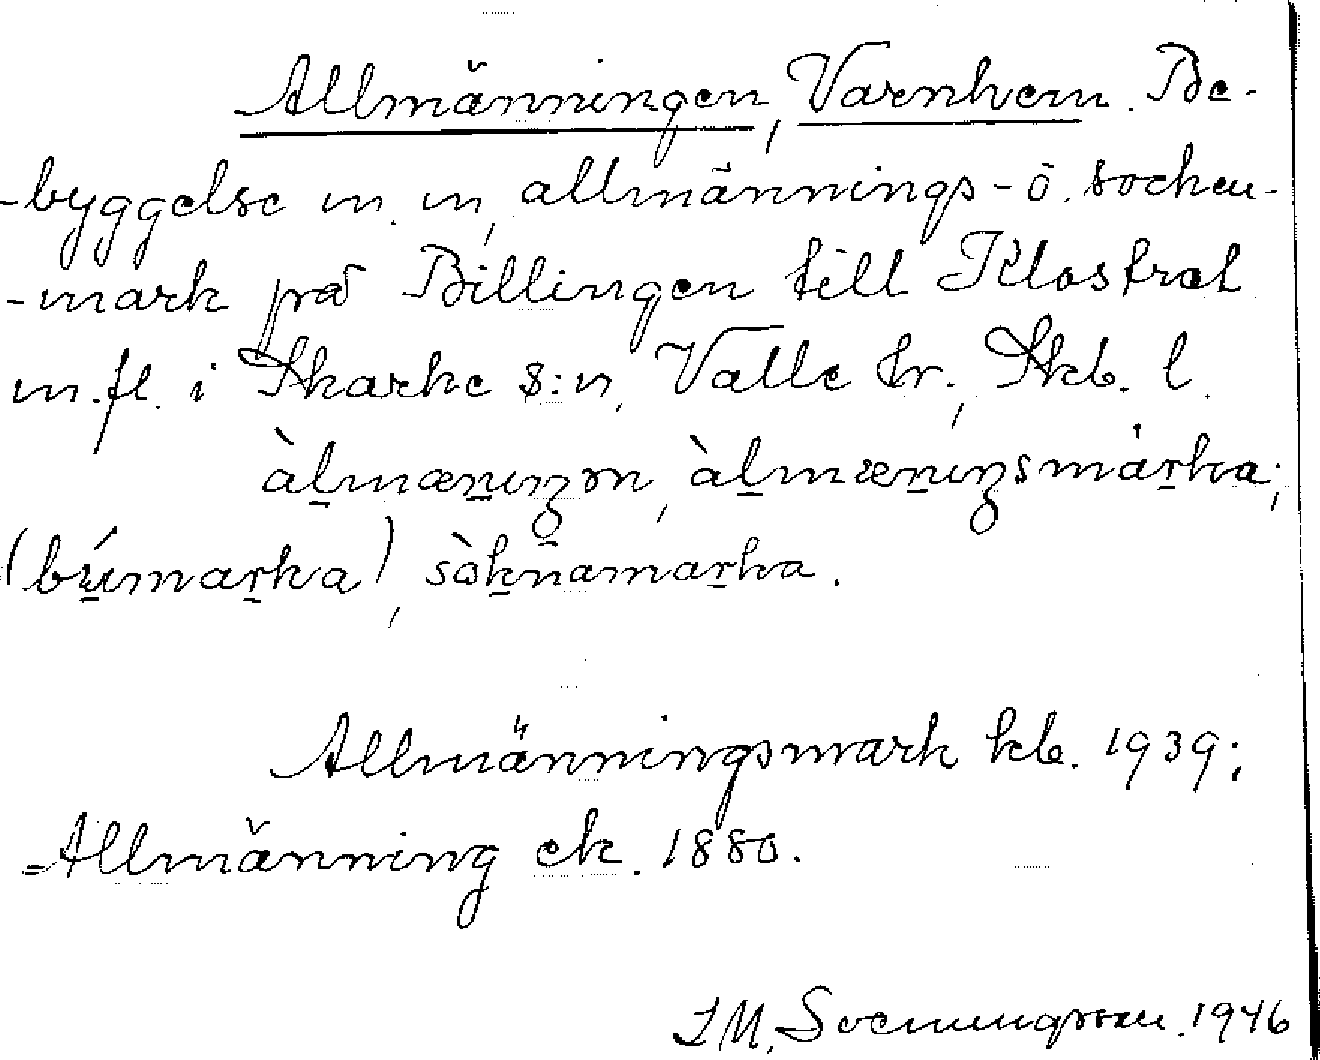 Allmänningen, Varnhem. Be-
-byggelse m. m, allmännings- o. socken-
-mark på Billingen till Klostret
m.fl. i Skarke s:n, Valle hr., Skb. l.
àlmænıŋən, àlmænıŋsmárka;
(búmarka), sòknamarka.
Allmänningsmark kb. 1939;
Allmänning ek. 1880.
I M, Svenungsson. 1946